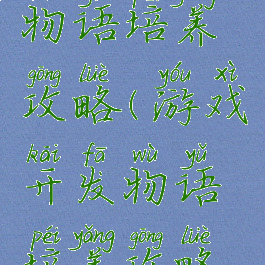 物语培养
gōng lüè yóu xì
攻略(游戏
kāi fā wù yǔ
开发物语
péi yǎng gōng lüè
培养攻略